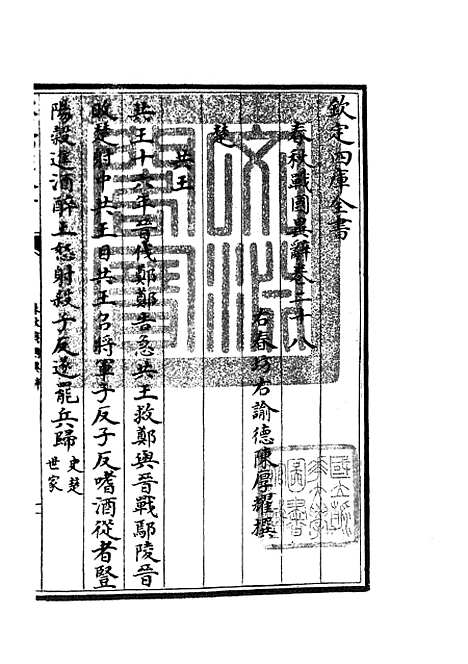 欽定四庫全書
春秋戰國異辭卷二十八
右春坊右諭德陳厚耀撰
楚
共王
共王十六年晉伐鄭鄭告急共王救鄭與晉戰鄢陵晉
敗楚射中共王目共王召將軍子反子反嗜酒從者豎
陽穀進酒醉王怒射殺子反遂罷兵歸 史楚世家